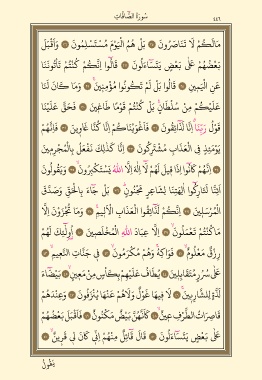 سُورَةُ الصَّافَّاتِ ٤٤٦
مَالَكُمْ لَا تَنَاصَرُونَ ۞ بَلْ هُمُ الْيَوْمَ مُسْتَسْلِمُونَ ۞ وَأَقْبَلَ
بَعْضُهُمْ عَلَى بَعْضٍ يَتَسَاءَلُونَ ۞ قَالُوا إِنَّكُمْ كُنْتُمْ تَأْتُونَنَا
عَنِ الْيَمِينِ ۞ قَالُوا بَلْ لَمْ تَكُونُوا مُؤْمِنِينَ ۞ وَمَا كَانَ لَنَا
عَلَيْكُمْ مِنْ سُلْطَانٍ بَلْ كُنْتُمْ قَوْمًا طَاغِينَ ۞ فَحَقَّ عَلَيْنَا
قَوْلُ رَبِّنَا إِنَّا لَذَائِقُونَ ۞ فَأَغْوَيْنَاكُمْ إِنَّا كُنَّا غَاوِينَ ۞ فَإِنَّهُمْ
يَوْمَئِذٍ فِي الْعَذَابِ مُشْتَرِكُونَ ۞ إِنَّا كَذَلِكَ نَفْعَلُ بِالْمُجْرِمِينَ
۞ إِنَّهُمْ كَانُوا إِذَا قِيلَ لَهُمْ لَا إِلَهَ إِلَّا اللهُ يَسْتَكْبِرُونَ ۞ وَيَقُولُونَ
أَئِنَّا لَتَارِكُوا آلِهَتِنَا لِشَاعِرٍ مَجْنُونٍ ۞ بَلْ جَاءَ بِالْحَقِّ وَصَدَّقَ
الْمُرْسَلِينَ ۞ إِنَّكُمْ لَذَائِقُوا الْعَذَابِ الْأَلِيمِ ۞ وَمَا تُجْزَوْنَ إِلَّا
مَا كُنْتُمْ تَعْمَلُونَ ۞ إِلَّا عِبَادَ اللهِ الْمُخْلَصِينَ ۞ أُولَئِكَ لَهُمْ
رِزْقٌ مَعْلُومٌ ۞ فَوَاكِهُ وَهُمْ مُكْرَمُونَ ۞ فِي جَنَّاتِ النَّعِيمِ ۞
عَلَى سُرُرٍ مُتَقَابِلِينَ ۞ يُطَافُ عَلَيْهِمْ بِكَأْسٍ مِنْ مَعِينٍ ۞ بَيْضَاءَ
لَذَّةٍ لِلشَّارِبِينَ ۞ لَا فِيهَا غَوْلٌ وَلَا هُمْ عَنْهَا يُنْزَفُونَ ۞ وَعِنْدَهُمْ
قَاصِرَاتُ الطَّرْفِ عِينٌ ۞ كَأَنَّهُنَّ بَيْضٌ مَكْنُونٌ ۞ فَأَقْبَلَ بَعْضُهُمْ
عَلَى بَعْضٍ يَتَسَاءَلُونَ ۞ قَالَ قَائِلٌ مِنْهُمْ إِنِّي كَانَ لِي قَرِينٌ ۞
يَقُولُ